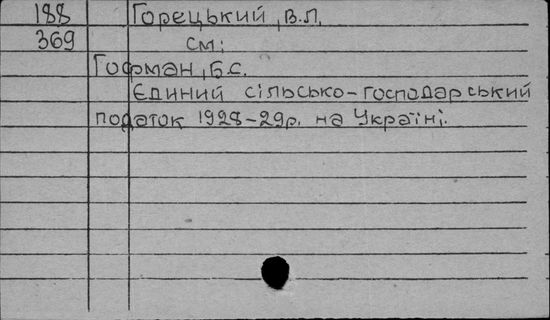 188 Горецький, В.Л.
369 см:
Гофман, Б.С.
Єдиний сільсько-господарський
податок 1928-29р. на Україні.